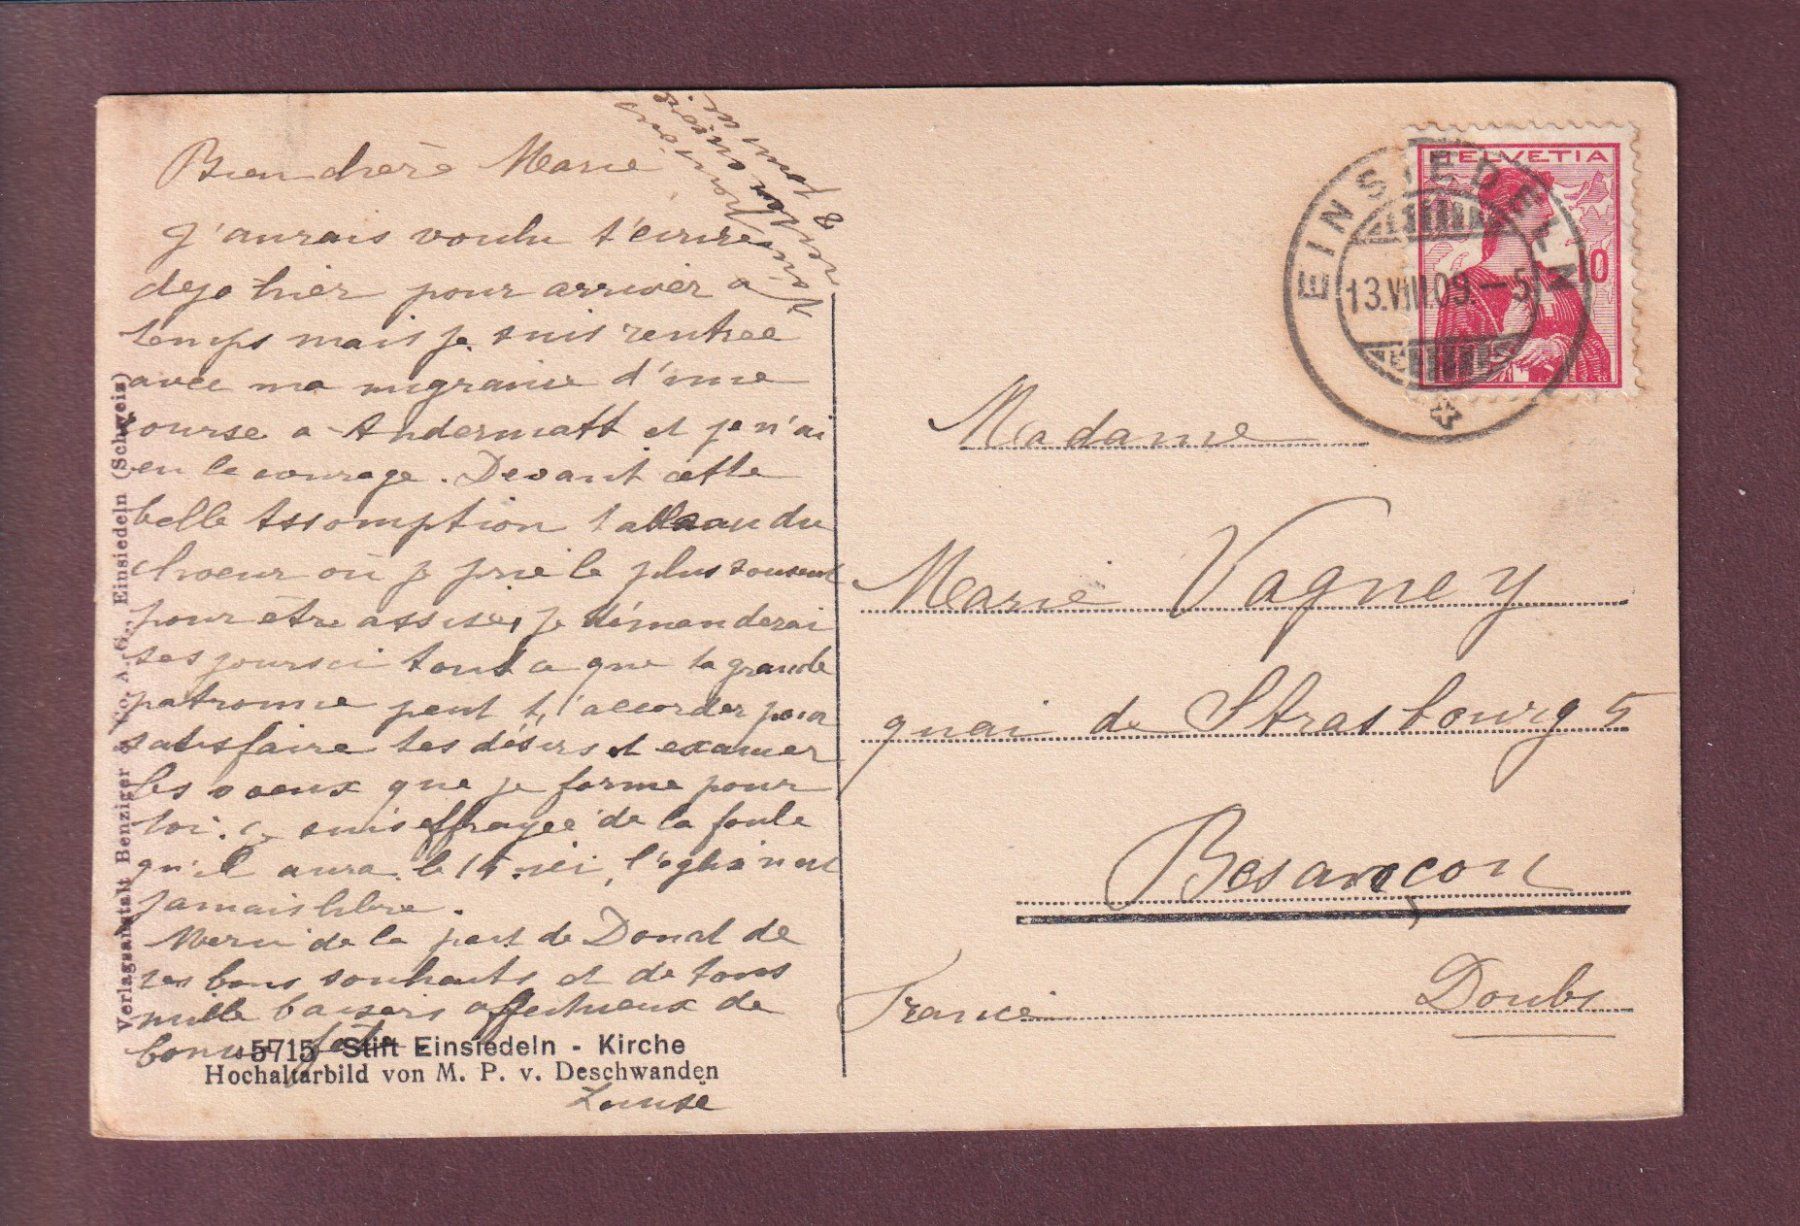 Bien chère Marie
J'aurais voulu t'écrire
deja hier pour arriver a
temps mais je suis rentree
avec ma migraine d'une
course a Andermatt et je n'ai
eu le courage. Devant cette
belle Assomption tableau du
choeur où je prie le plus souvent
pour être assise, je demanderai
ses jours ci tout ce que ta grande
patronne peut t'accorder pour
satisfaire tes désirs et examer
les voeux que je forme pour
toi. Je suis effrayée de la foule
qu'il aura le 15 ici, l'eglise n'est
jamais libre.
Merci de la part de Donat de
tes bons souhaits et de tous
mille baisers affectueux de
bonne fete
Louise
pour
5715 Stift Einsiedeln - Kirche
Hochaltarbild von M. P. v. Deschwanden
Verlagsanstalt Benziger & Co. A. G., Einsiedeln (Schweiz)
HELVETIA
10
EINSIEDELN
13.VIII.09.–5
Madame
Marie Vagney
quai de Strasbourg 5
Besançon
France Doubs